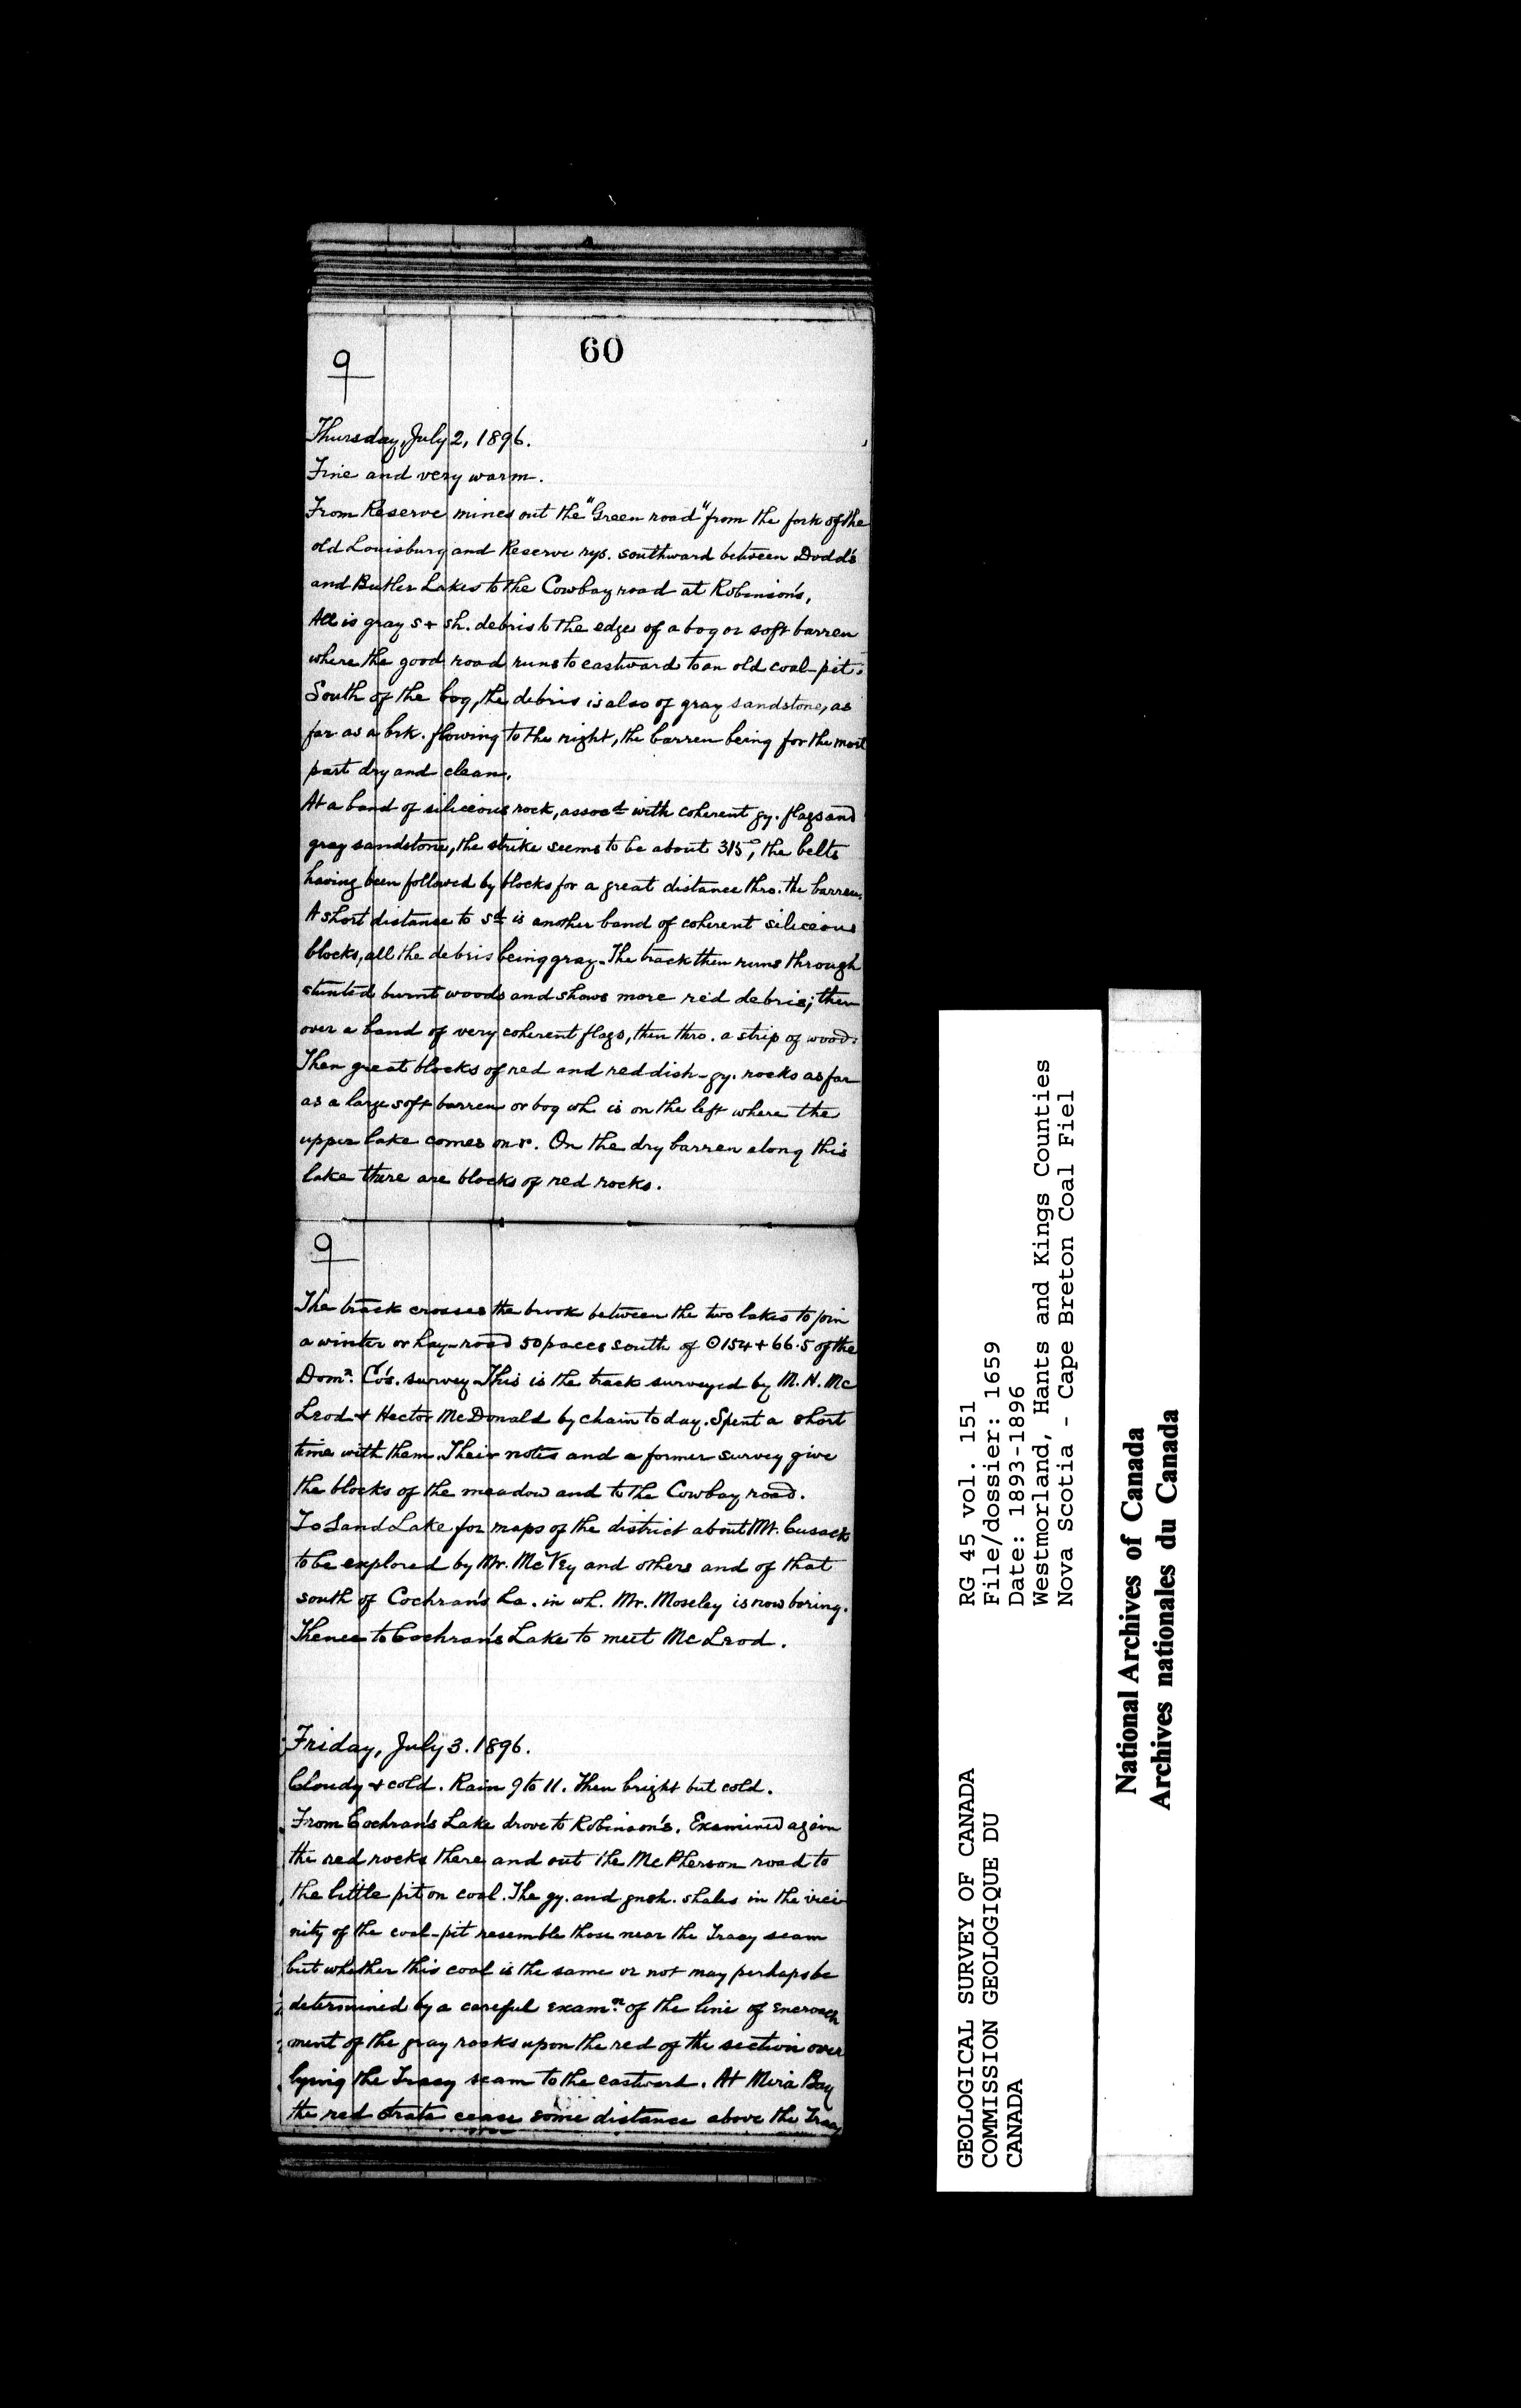 60
9
Thursday, July 2, 1896.
Fine and very warm.
From Reserve mines out the "Green road" from the fork of the
old Louisburg and Reserve rys. southward between Dodd's
and Butler Lakes to the Cowbay road at Robinson's,
All is gray s + sh. debris to the edge of a bog or soft barren
where the good road runs to eastward to an old coal-pit.
South of the bog, the debris is also of gray sandstone, as
far as a brk. flowing to the right, the barren being for the most
part dry and clean.
At a band of siliceous rock, assocd with coherent gy. flags and
gray sandstone, the strike seems to be about 315°, the belts
having been followed by blocks for a great distance thro. the barren.
A short distance to sd is another band of coherent siliceous
blocks, all the debris being gray. The track then runs through
stunted burnt woods and shows more red debris; then
over a band of very coherent flags, then thro. a strip of wood.
Then great blocks of red and reddish-gy. rocks as far
as a large soft barren or bog wh. is on the left where the
upper lake comes on r. On the dry barren along this
lake there are blocks of red rocks.
9
The track crosses the brook between the two lakes to join
a winter or hay-road 50 paces south of ⊙154+66.5 of the
Domn. Co's. survey. This is the track surveyed by M. H. Mc
Leod + Hector McDonald by chain to day. Spent a short
time with them. Their notes and a former survey give
the blocks of the meadow and to the Cowbay road.
To Sand Lake for maps of the district about Mt. Cusack
to be explored by Mr. McVey and others and of that
south of Cochran's La. in wh. Mr. Moseley is now boring.
Thence to Cochran's Lake to meet McLeod.
Friday, July 3. 1896.
Cloudy + cold. Rain 9 to 11. Then bright but cold.
From Cochran's Lake drove to Robinson's. Examined again
the red rocks there and out the McPherson road to
the little pit on coal. The gy. and gnsh. shales in the vici
nity of the coal-pit resemble those near the Tracy seam
but whether this coal is the same or not may perhaps be
determined by a careful examn. of the line of encroach
ment of the gray rocks upon the red of the section over
lying the Tracy seam to the eastward. At Mira Bay
the red strata cease some distance above the Tracy
RG 45 vol. 151
File/dossier: 1659
Date: 1893-1896
Westmorland, Hants and Kings Counties
Nova Scotia - Cape Breton Coal Fiel
GEOLOGICAL SURVEY OF CANADA
COMMISSION GEOLOGIQUE DU
CANADA
National Archives of Canada
Archives nationales du Canada